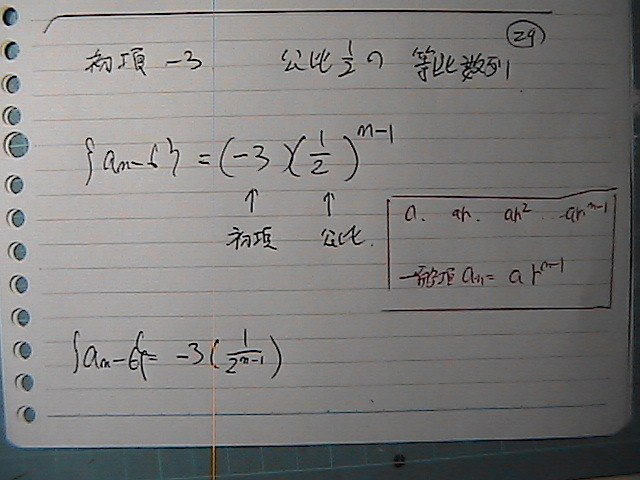 29
初項 -3 公比 1/2 の 等比数列
{an-6} = (-3)(1/2)^n-1
↑ ↑
初項 公比.
a. ar. ar² … ar^n-1
一般項 an = ar^n-1
{an-6} = -3(1/2^n-1)